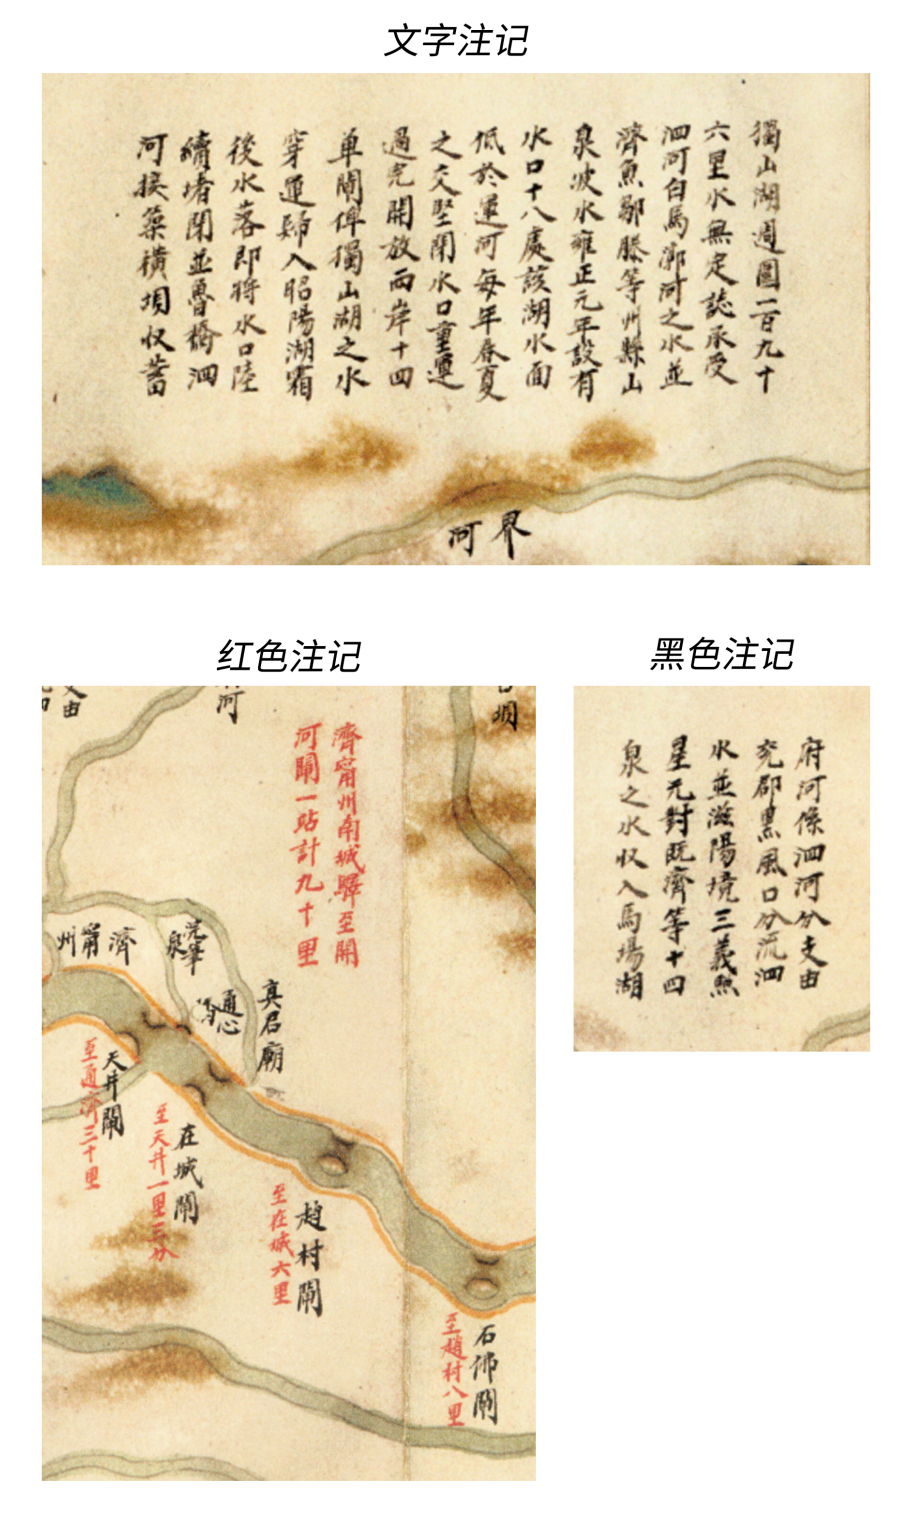 文字注记
獨山湖週圍一百九十
六里水無定誌承受
泗河白馬漷河之水並
濟魚鄒滕等州縣山
泉波水雍正元年設有
水口十八處該湖水面
低於運河每年春夏
之交堅閉水口重運
過完開放南岸十四
單閘俾獨山湖之水
穿運歸入昭陽湖霜
後水落即將水口陸
續堵閉並魯橋泗
河接築橫壩収蓄
界河
红色注记
濟甯州南城驛至開
河閘一站計九十里
濟甯州
泉
通心
真君廟
天井閘
至通濟三十里
在城閘
至天井一里三分
趙村閘
至在城六里
石佛閘
至趙村八里
黑色注记
府河係泗河分支由
兖郡黑風口分流泗
水並滋陽境三義煦
星元對既濟等十四
泉之水収入馬場湖